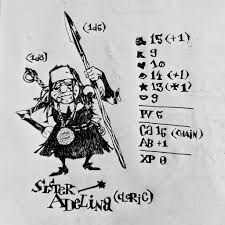 (1d6)
(1d8)
15 (+1)
9
10
14 (+1)
13 (*1)
9
PV 5
CA 15 (CHAIN)
AB +1
XP 0
SISTER
ADELINA (CLERIC)